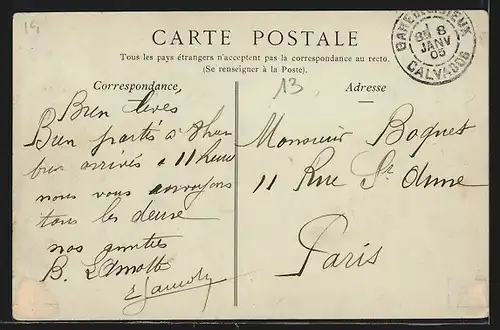 CARTE POSTALE
Tous les pays étrangers n'acceptent pas la correspondance au recto.
(Se renseigner à la Poste).
Correspondance
Adresse
GARE DE LISIEUX
8
JANV
05
CALVADOS
13
Bien
Bien partis à
bien arrivés à 11 heures
nous vous envoyons
tous les deux
nos amitiés
B. Lamotte
Monsieur Boquet
11 Rue Ste Anne
Paris